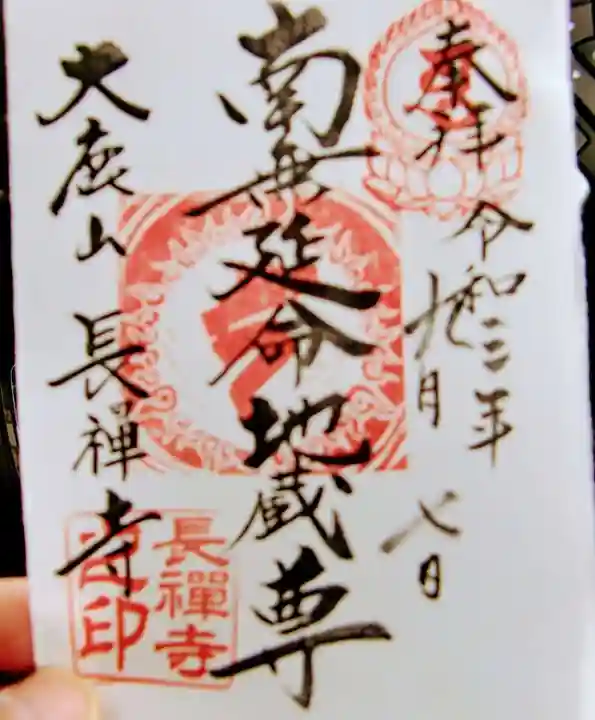 奉拝
令和三年
九月
七日
南無延命地蔵尊
大鹿山 長禪寺
長禪寺
印